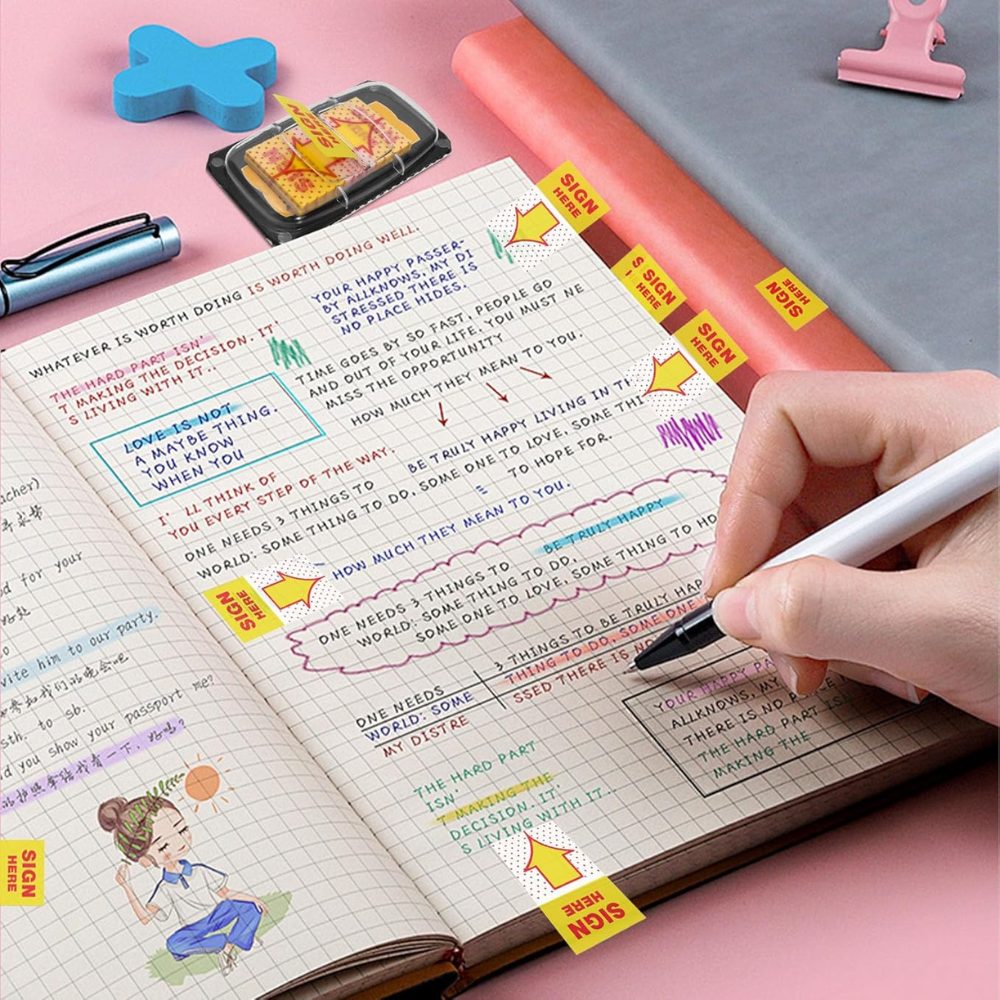 SIGN
HERE
SIGN
HERE
SIGN
HERE
SIGN
HERE
SIGN
HERE
WHATEVER IS WORTH DOING IS WORTH DOING WELL.
THE HARD PART ISN'
T MAKING THE DECISION. IT
S LIVING WITH IT..
YOUR HAPPY PASSER-
BY ALLKNOWS, MY DI
STRESSED THERE IS
NO PLACE HIDES.
LOVE IS NOT
A MAYBE THING.
YOU KNOW
WHEN YOU
TIME GOES BY SO FAST, PEOPLE GO
AND OUT OF YOUR LIFE. YOU MUST NE
MISS THE OPPORTUNITY
HOW MUCH THEY MEAN TO YOU.
I' LL THINK OF
YOU EVERY STEP OF THE WAY.
BE TRULY HAPPY LIVING IN TH
ONE NEEDS 3 THINGS TO
WORLD: SOME THING TO DO, SOME ONE TO LOVE, SOME THI
TO HOPE FOR.
= HOW MUCH THEY MEAN TO YOU.
SIGN
HERE
BE TRULY HAPPY
ONE NEEDS 3 THINGS TO
WORLD: SOME THING TO DO,
SOME ONE TO LOVE, SOME THING TO HO
3 THINGS TO BE TRULY HAPP
THING TO DO, SOME ONE
SSED THERE IS NO
ONE NEEDS
WORLD: SOME
MY DISTRE
YOUR HAPPY PA
ALLKNOWS, MY
THERE IS NO PLACE
THE HARD PART IS
MAKING THE
THE HARD PART
ISN'
T MAKING THE
DECISION. IT'
S LIVING WITH IT..
SIGN
HERE
acher)
d for your
vite him to our party.
sth. to sb.
d you show your passport me?
SIGN
HERE